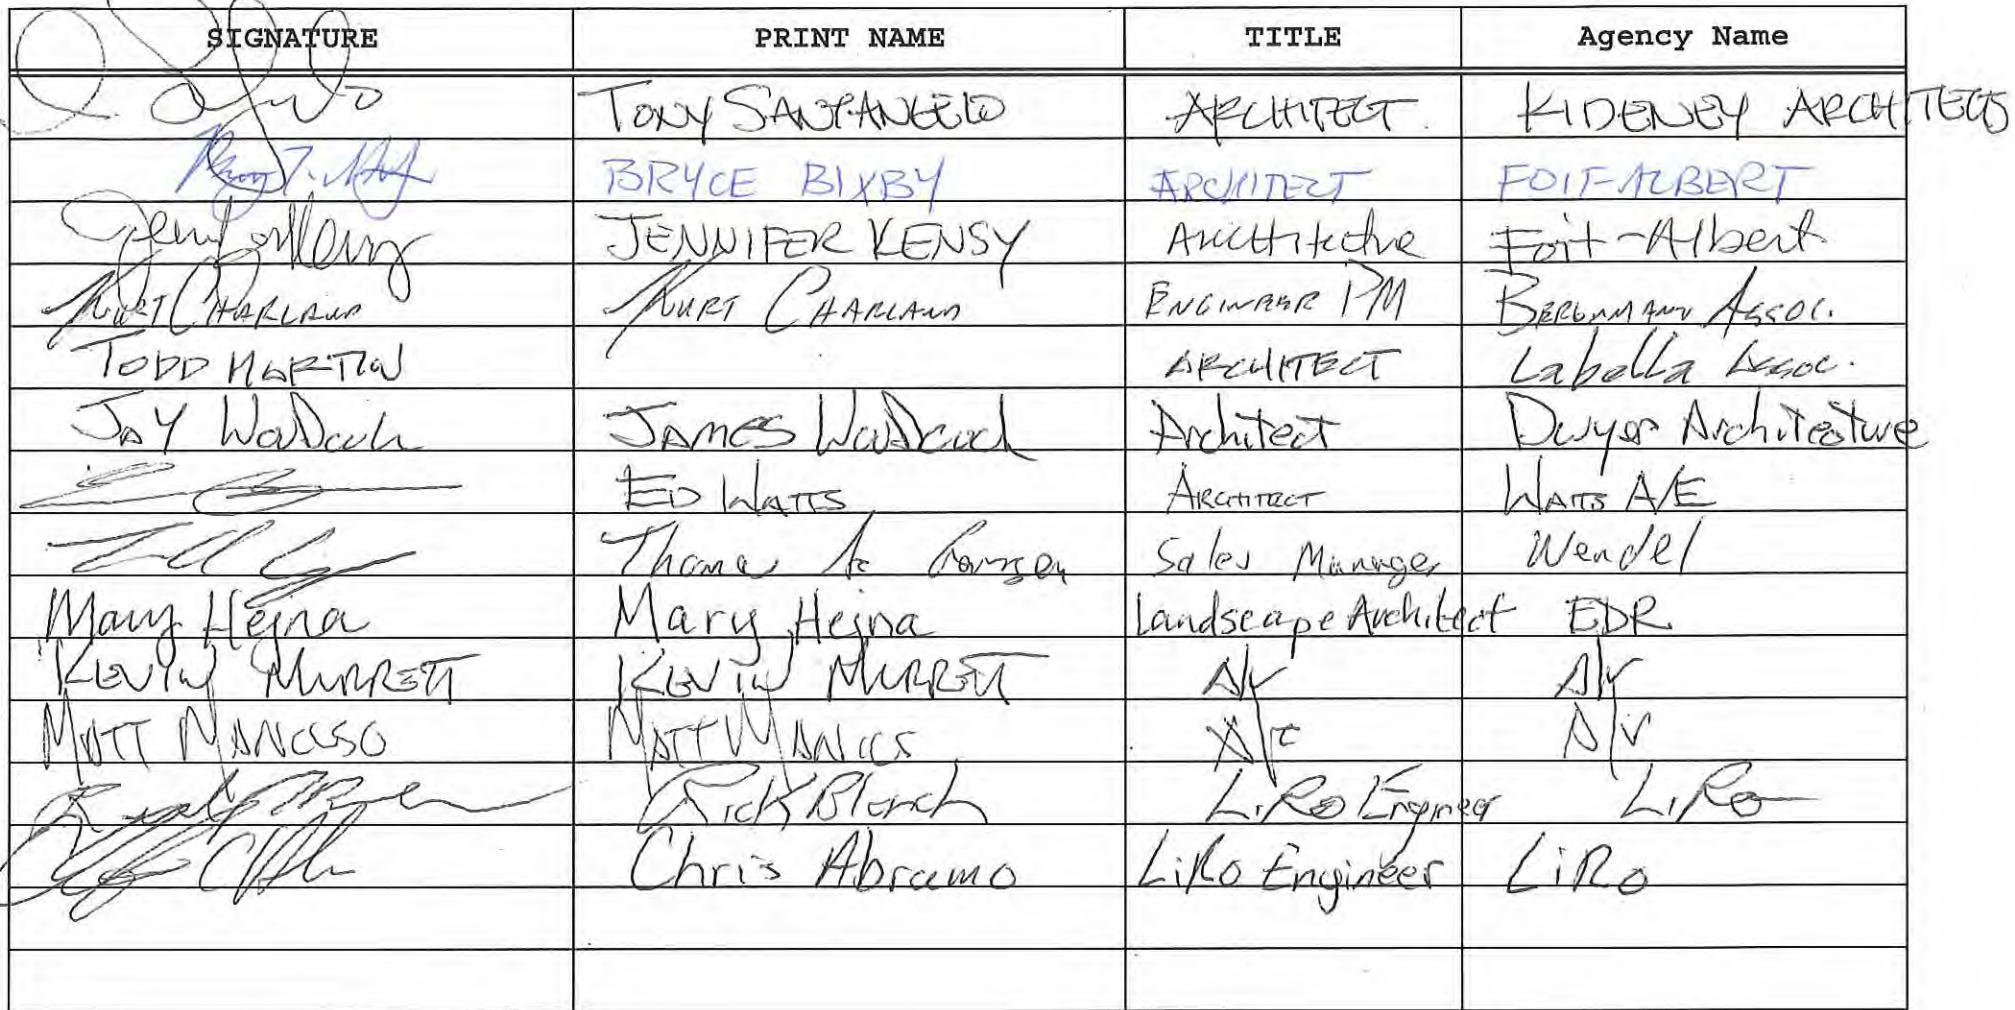 SIGNATURE PRINT NAME TITLE Agency Name
TONY SANTANGELO ARCHITECT KIDENEY ARCHITECTS
BRYCE BIXBY ARCHITECT FOIT-ALBERT
JENNIFER KENSY Architecture Foit-Albert
KURT CHARLAND KURT CHARLAND ENGINEER PM BERGMANN ASSOC.
TODD MARTIN ARCHITECT Labella Assoc.
JAY JAMES Architect Dwyer Architecture
ED WATTS ARCHITECT WATTS A/E
Sales Manager Wendel
Mary Hejna Mary Hejna Landscape Architect EDR
KEVIN MURRETT KEVIN MURRETT
MATT MANCUSO MATT
Rick LiRo Engineer LiRo
Chris Abramo LiRo Engineer LiRo